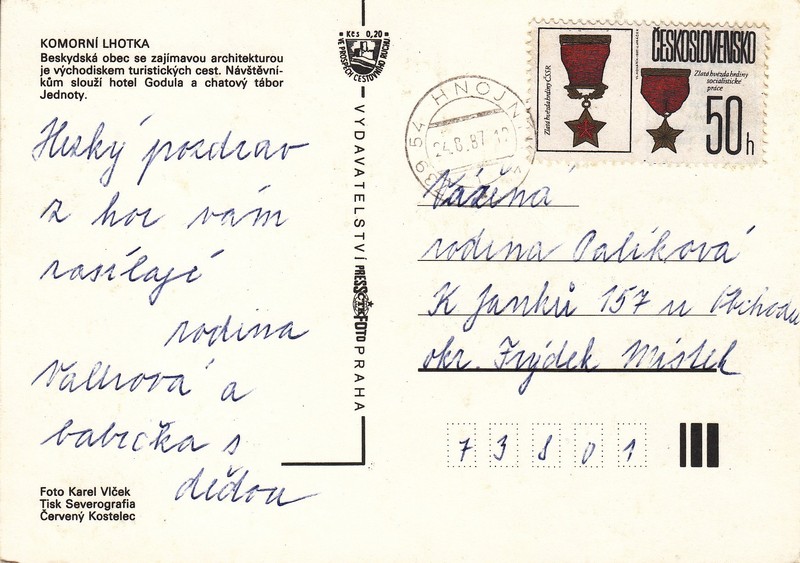 KOMORNÍ LHOTKA
Beskydská obec se zajímavou architekturou
je východiskem turistických cest. Návštěvní-
kům slouží hotel Godula a chatový tábor
Jednoty.
Hezký pozdrav
z hor vám
zasílají
rodina
Valhrová a
babička s
dědou
Foto Karel Vlček
Tisk Severografia
Červený Kostelec
Kčs 0,20
VE PROSPĚCH CESTOVNÍHO RUCHU
VYDAVATELSTVÍ PRESSFOTO PRAHA
ČTK
739 54 HNOJN
24.8.87
Zlatá hvězda hrdiny ČSSR
ČESKOSLOVENSKO
Zlatá hvězda hrdiny
socialistické
práce
50h
Vážená
rodina Palíková
K Janků 157 u Obchodu
okr. Frýdek Místek
73801